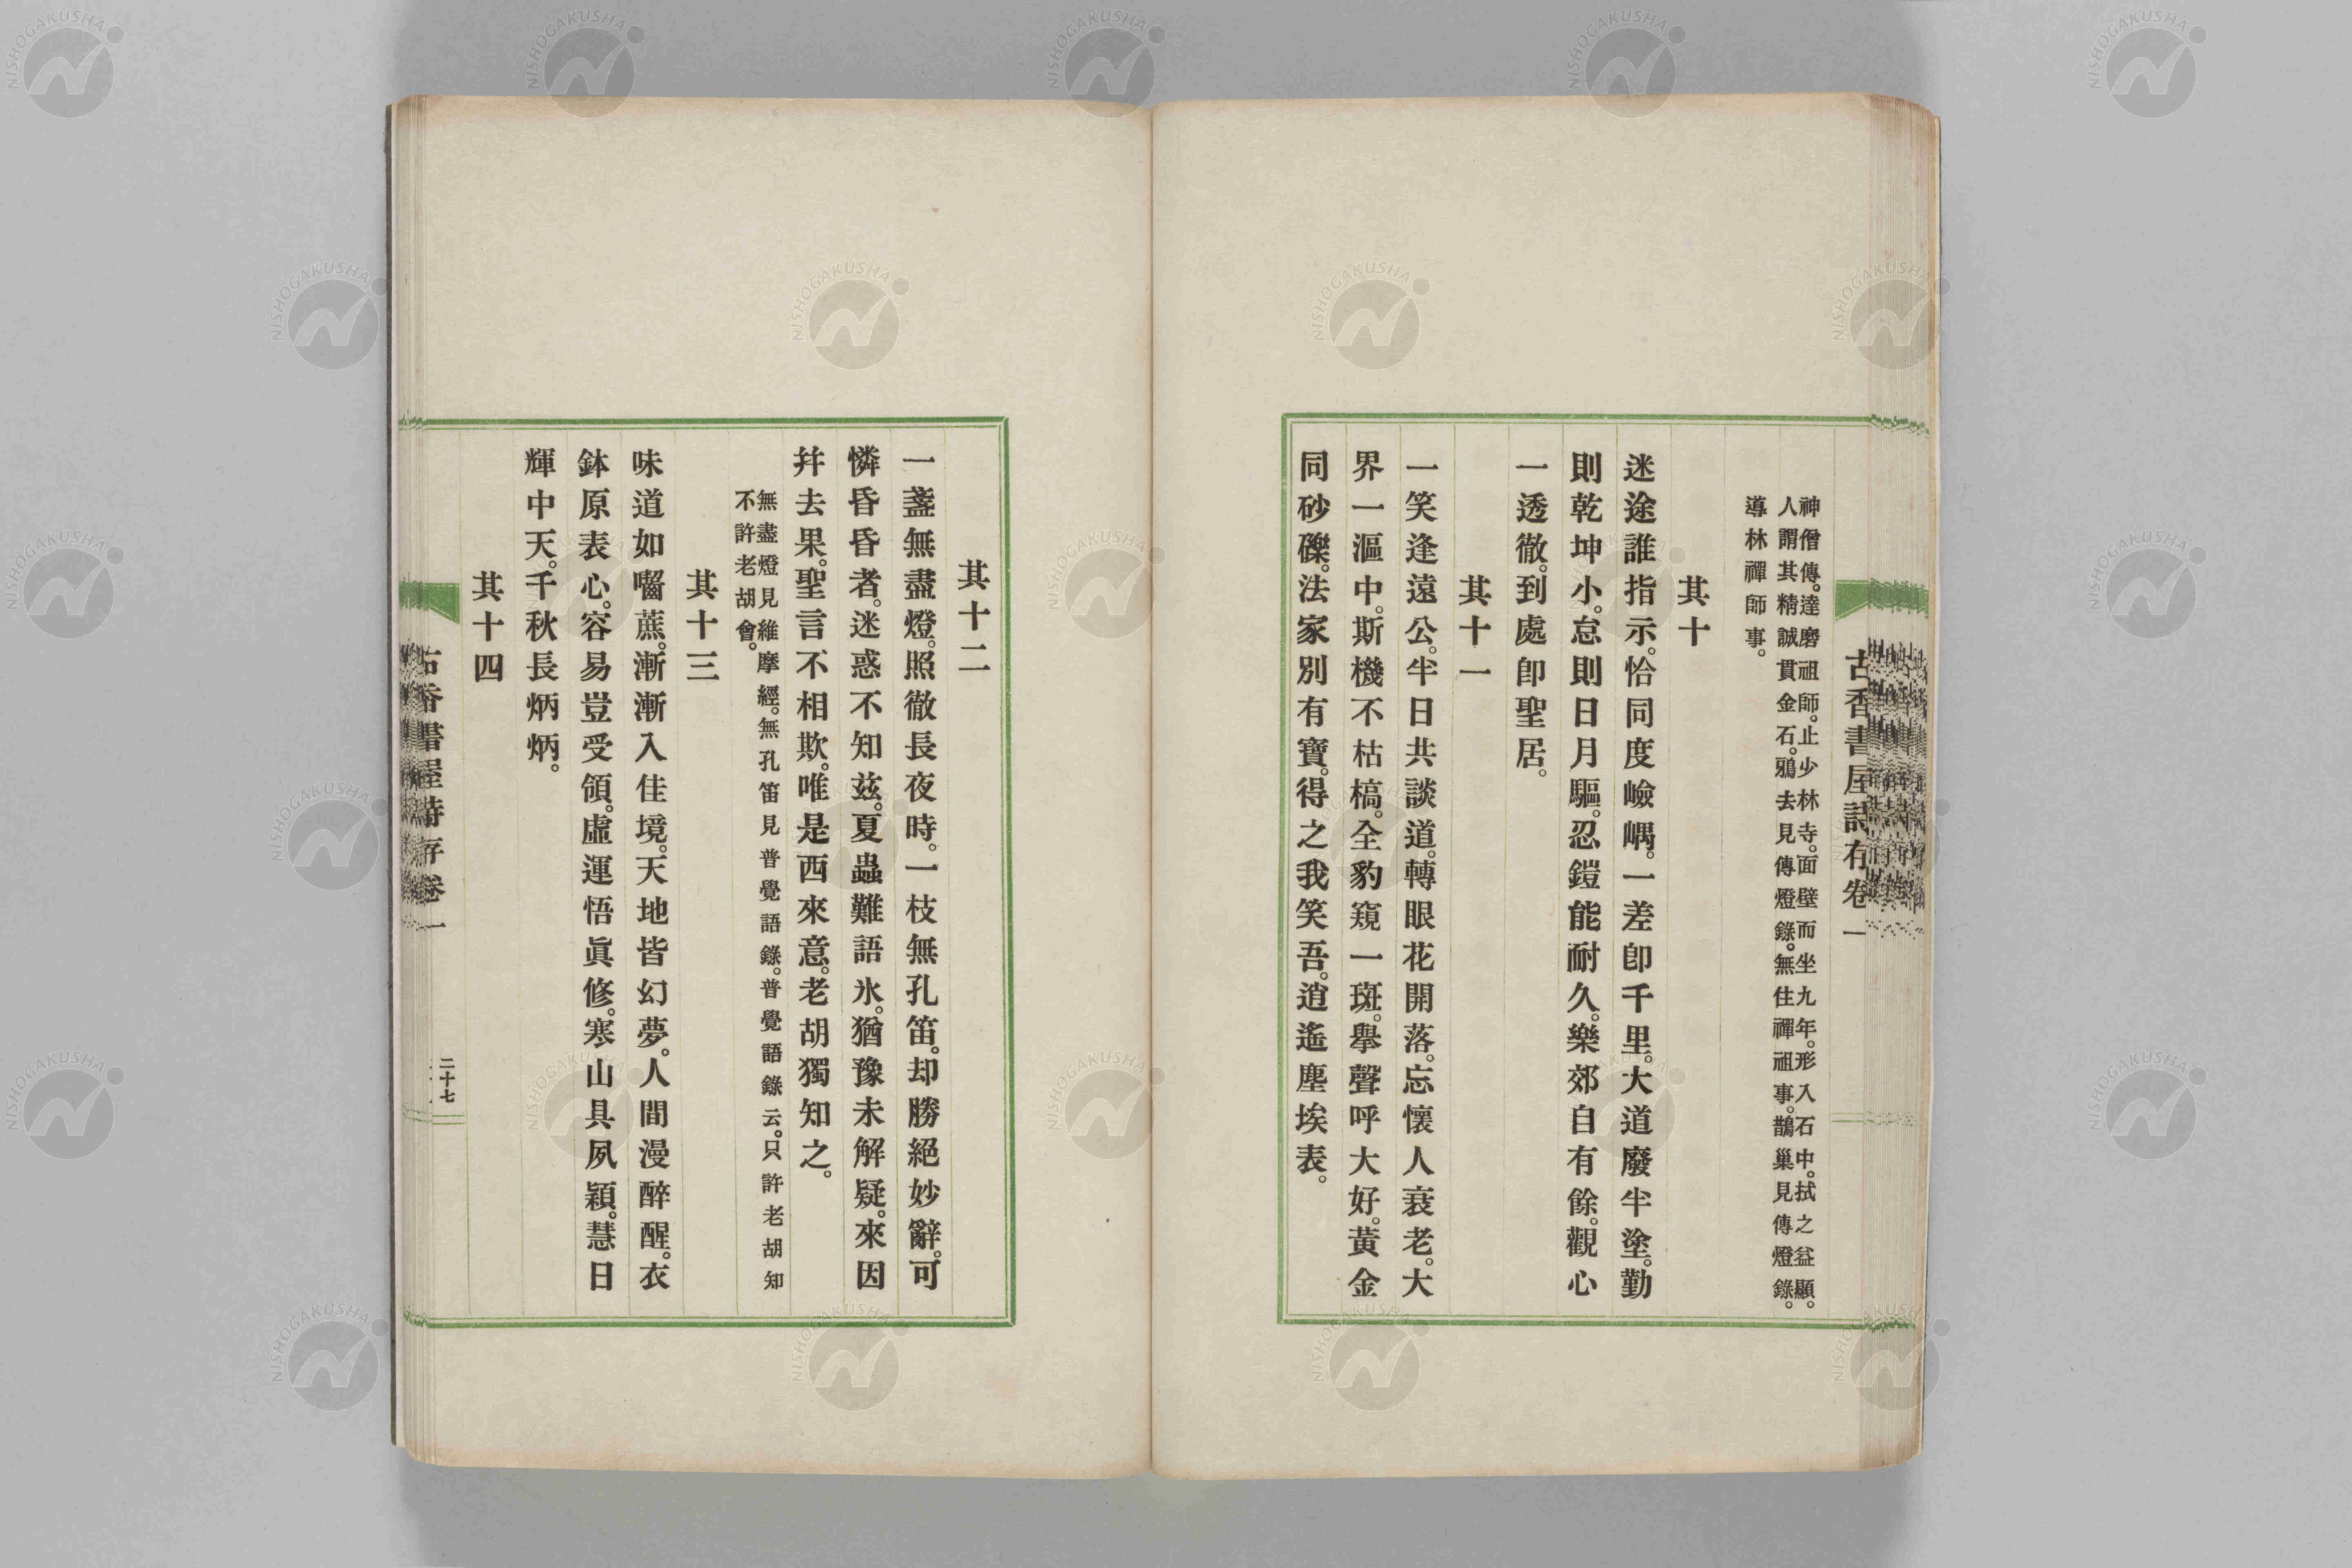 古香書屋詩存卷一
神僧傳。達磨祖師。止少林寺。面壁而坐九年。形入石中。拭之益顯。
人謂其精誠貫金石。鴉去見傳燈錄。無住禪祖事。鵲巢見傳燈錄。
導林禪師事。
其十
迷途誰指示。恰同度嶮嵎。一差卽千里。大道廢半塗。勤
則乾坤小。怠則日月驅。忍鎧能耐久。樂郊自有餘。觀心
一透徹。到處卽聖居。
其十一
一笑逢遠公。半日共談道。轉眼花開落。忘懷人衰老。大
界一漚中。斯機不枯槁。全豹窺一斑。擧聲呼大好。黃金
同砂礫。法家別有寶。得之我笑吾。逍遙塵埃表。
其十二
一盞無盡燈。照徹長夜時。一枝無孔笛。却勝絕妙辭。可
憐昏昏者。迷惑不知玆。夏蟲難語氷。猶豫未解疑。來因
幷去果。聖言不相欺。唯是西來意。老胡獨知之。
無盡燈見維摩經。無孔笛見普覺語錄。普覺語錄云。只許老胡知
不許老胡會。
其十三
味道如嚼蔗。漸漸入佳境。天地皆幻夢。人間漫醉醒。衣
鉢原表心。容易豈受領。虛運悟眞修。寒山具夙穎。慧日
輝中天。千秋長炳炳。
其十四
古香書屋詩存卷一
二十七
NISHOGAKUSHA